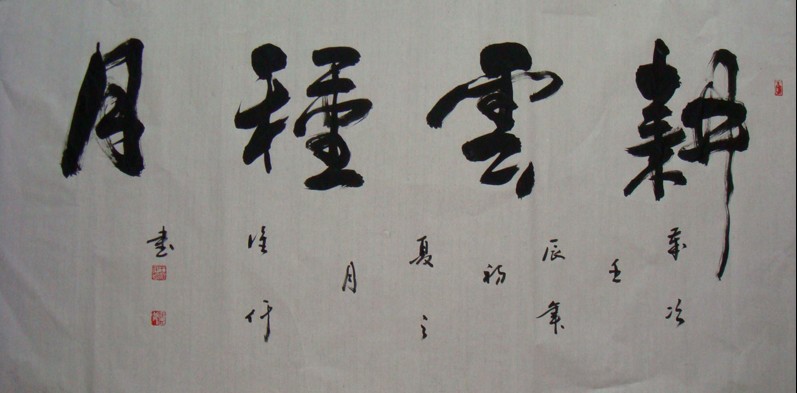 耕雲種月
歲次
壬
辰年
初
夏之
月
書